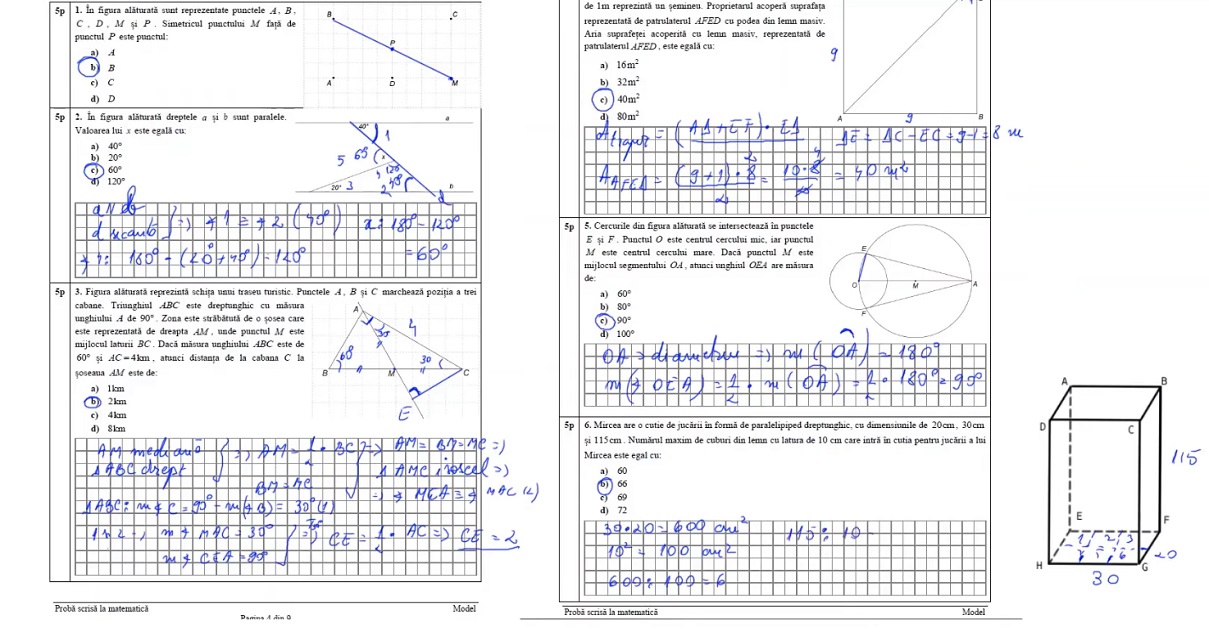 5p
1. În figura alăturată sunt reprezentate punctele A, B,
C, D, M și P. Simetricul punctului M față de
punctul P este punctul:
a) A
b) B
c) C
d) D
B
C
P
A
D
M
5p
2. În figura alăturată dreptele a și b sunt paralele.
Valoarea lui x este egală cu:
a) 40°
b) 20°
c) 60°
d) 120°
40°
a
1
5
60
x
4
120
20°
3
2
b
d
a II b
d secantă
=) ∢1 ≡ ∢2 (40°)
x = 180° - 120°
= 60°
∢4: 180° - (20° + 40°) = 120°
5p
3. Figura alăturată reprezintă schița unui traseu turistic. Punctele A, B și C marchează poziția a trei
cabane. Triunghiul ABC este dreptunghic cu măsura
unghiului A de 90°. Zona este străbătută de o șosea care
este reprezentată de dreapta AM, unde punctul M este
mijlocul laturii BC. Dacă măsura unghiului ABC este de
60° și AC=4km, atunci distanța de la cabana C la
șoseaua AM este de:
a) 1km
b) 2km
c) 4km
d) 8km
A
30
4
60
30
B
M
C
E
AM mediană
Δ ABC drept
=) AM = 1/2 · BC =)
BM = MC
AM = BM = MC =)
Δ AMC isoscel =)
=) ∢ MCA ≡ ∢ MAC (2)
Δ ABC: m ∢ C = 90° - m(∢ B) = 30° (1)
m ∢ MAC = 30°
m ∢ CEA = 90°
=) CE = 1/2 · AC =) CE = 2
Probă scrisă la matematică
Model
Pagina 4 din 9
de 1m reprezintă un șemineu. Proprietarul acoperă suprafața
reprezentată de patrulaterul AFED cu podea din lemn masiv.
Aria suprafeței acoperită cu lemn masiv, reprezentată de
patrulaterul AFED, este egală cu:
a) 16m²
b) 32m²
c) 40m²
d) 80m²
9
A
9
B
A trapez = (AD + EF) · ED / 2
DE = DC - EC = 9-1 = 8 m
A AFED = (9+1) · 8 / 2 = 10·8 / 2 = 40 m²
5p
5. Cercurile din figura alăturată se intersectează în punctele
E și F. Punctul O este centrul cercului mic, iar punctul
M este centrul cercului mare. Dacă punctul M este
mijlocul segmentului OA, atunci unghiul OEA are măsura
de:
a) 60°
b) 80°
c) 90°
d) 100°
E
O
M
A
F
OA = diametru =) m (OA) = 180°
m(∢ OEA) = 1/2 · m(OA) = 1/2 · 180° = 90°
5p
6. Mircea are o cutie de jucării în formă de paralelipiped dreptunghic, cu dimensiunile de 20cm, 30cm
și 115cm. Numărul maxim de cuburi din lemn cu latura de 10 cm care intră în cutia pentru jucării a lui
Mircea este egal cu:
a) 60
b) 66
c) 69
d) 72
30·20 = 600 cm²
115 : 10
10² = 100 cm²
600 : 100 = 6
Probă scrisă la matematică
Model
A
B
D
C
115
E
F
1 2 3
6
20
H
G
30